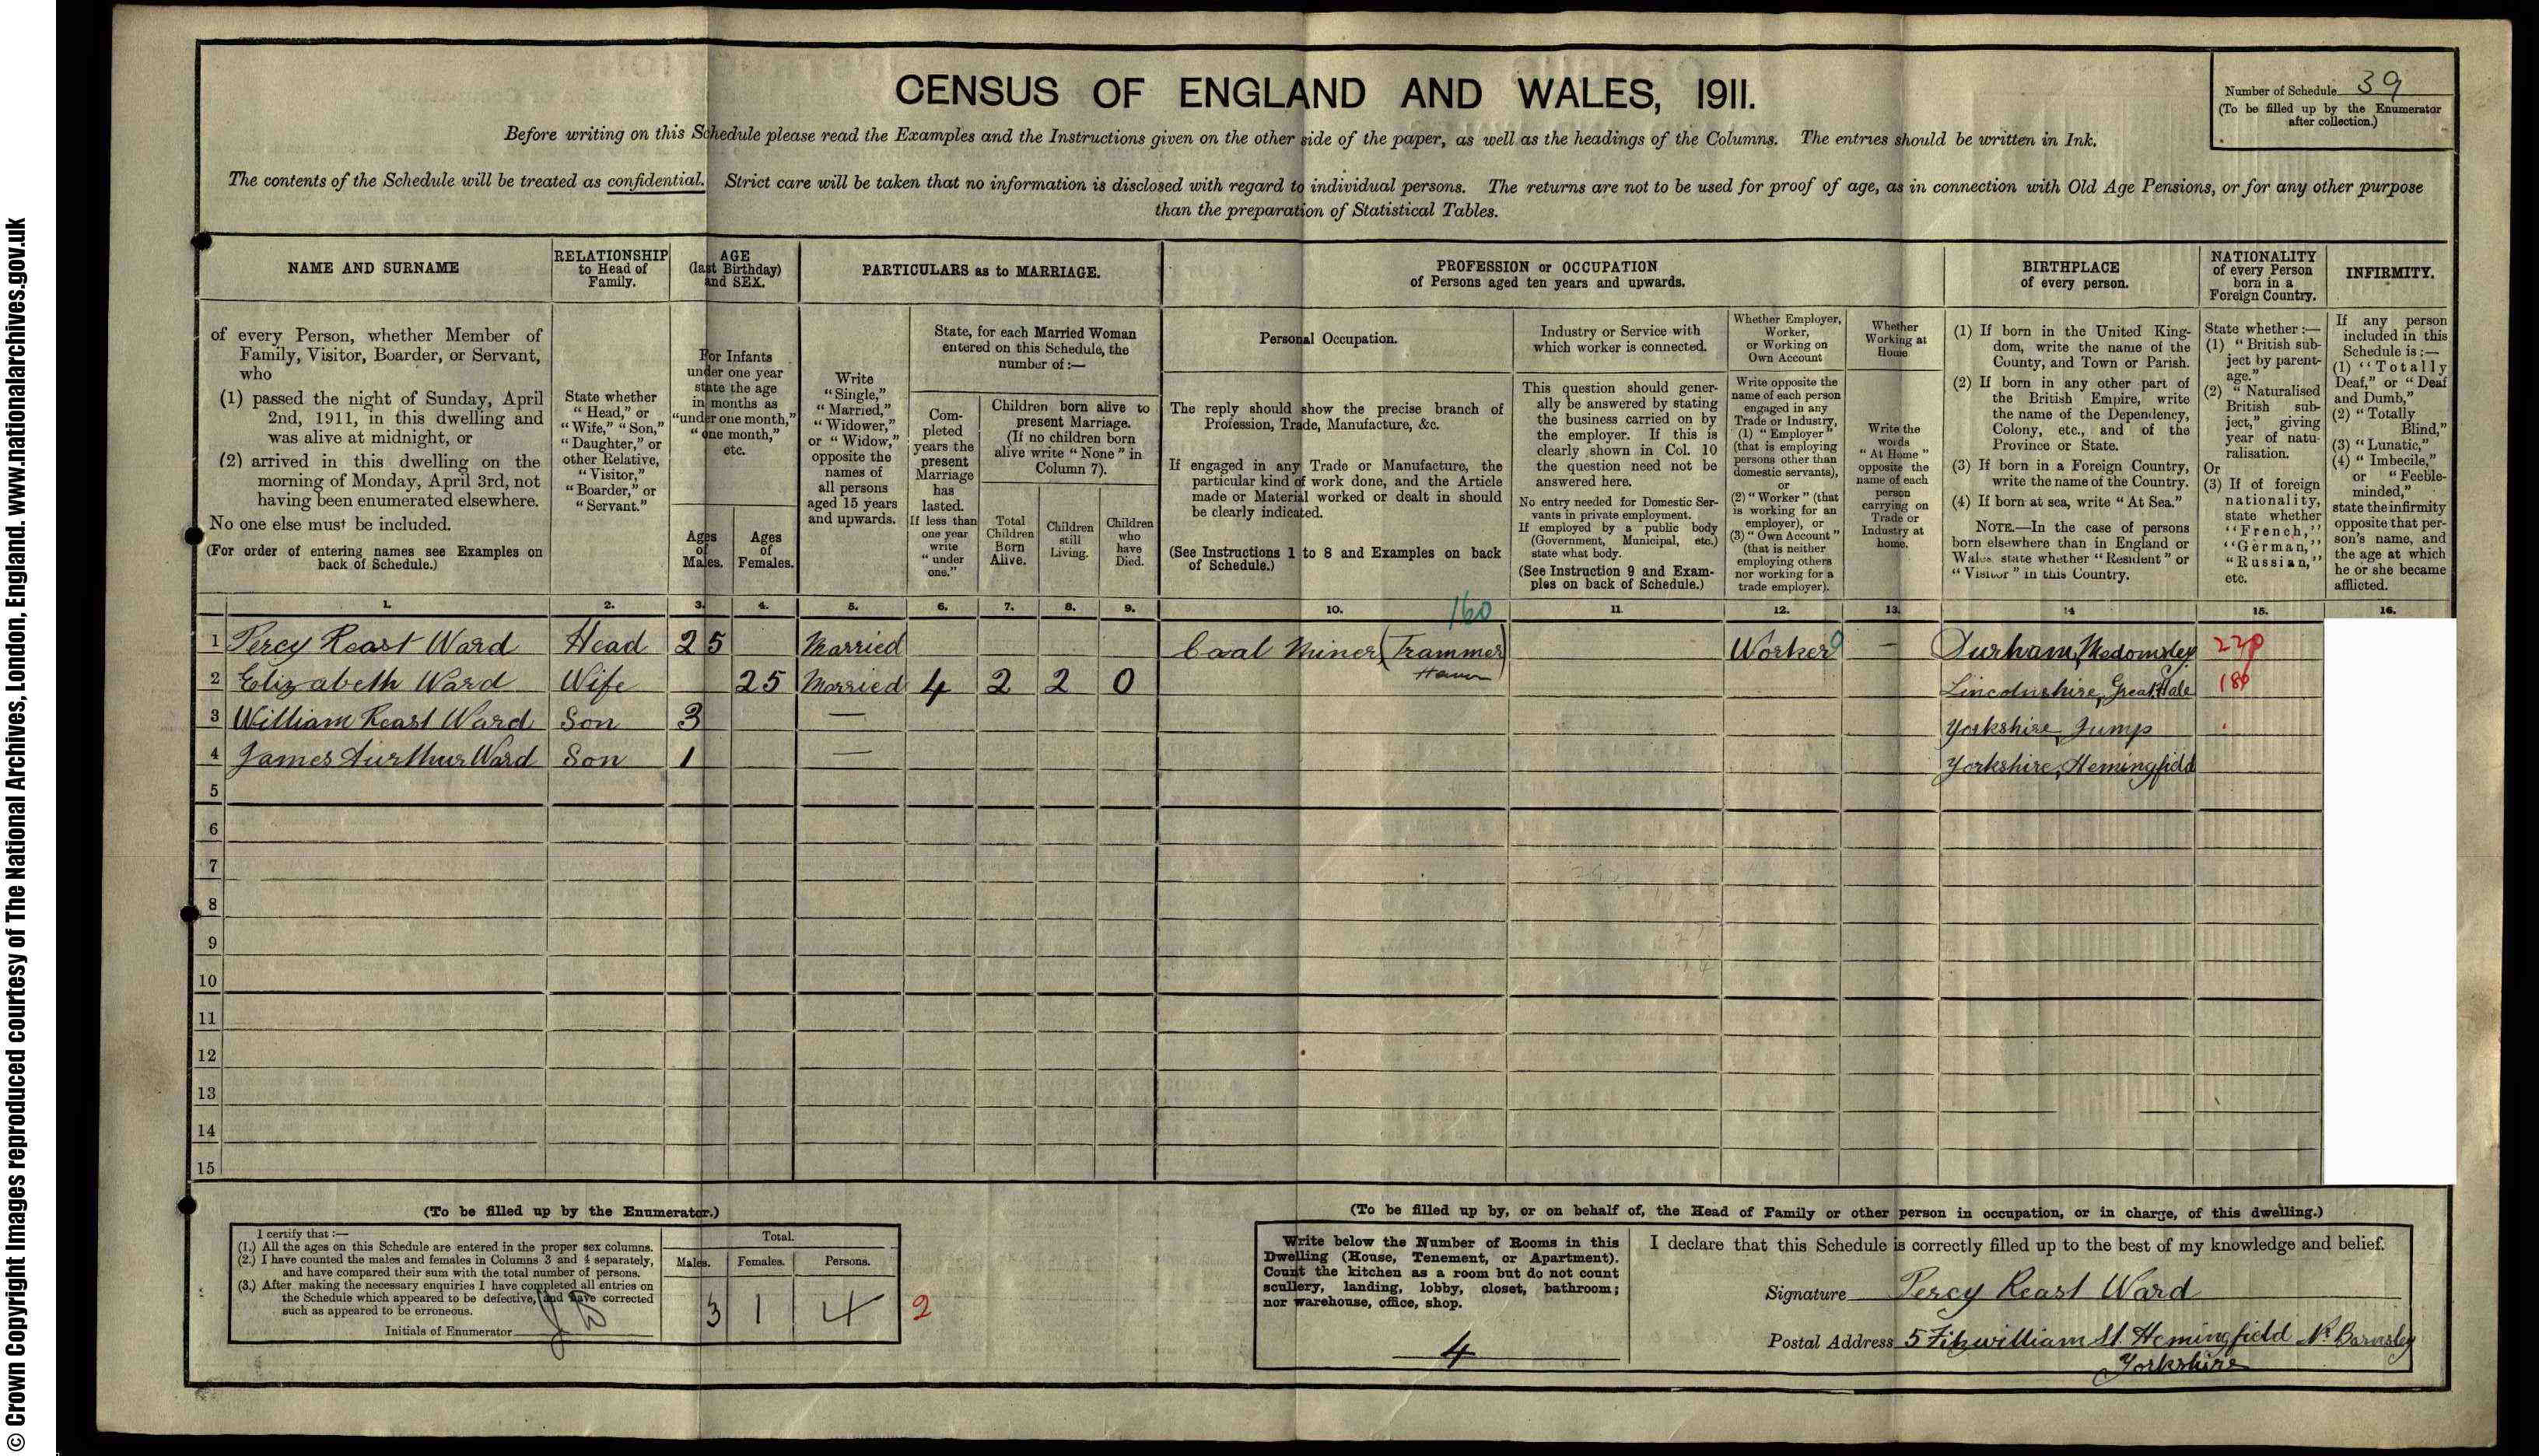 © Crown Copyright Images reproduced courtesy of The National Archives, London, England. www.nationalarchives.gov.uk
CENSUS OF ENGLAND AND WALES, 1911.
Number of Schedule 39
(To be filled up by the Enumerator
after collection.)
Before writing on this Schedule please read the Examples and the Instructions given on the other side of the paper, as well as the headings of the Columns. The entries should be written in Ink.
The contents of the Schedule will be treated as confidential. Strict care will be taken that no information is disclosed with regard to individual persons. The returns are not to be used for proof of age, as in connection with Old Age Pensions, or for any other purpose
than the preparation of Statistical Tables.
NAME AND SURNAME
of every Person, whether Member of
Family, Visitor, Boarder, or Servant,
who
(1) passed the night of Sunday, April
2nd, 1911, in this dwelling and
was alive at midnight, or
(2) arrived in this dwelling on the
morning of Monday, April 3rd, not
having been enumerated elsewhere.
No one else must be included.
(For order of entering names see Examples on
back of Schedule.)
RELATIONSHIP
to Head of
Family.
State whether
"Head," or
"Wife," "Son,"
"Daughter," or
other Relative,
"Visitor,"
"Boarder," or
"Servant."
AGE
(last Birthday)
and SEX.
For Infants
under one year
state the age
in months as
"under one month,"
"one month,"
etc.
Ages
of
Males.
Ages
of
Females.
PARTICULARS as to MARRIAGE.
Write
"Single,"
"Married,"
"Widower,"
or "Widow,"
opposite the
names of
all persons
aged 15 years
and upwards.
State, for each Married Woman
entered on this Schedule, the
number of :—
Com-
pleted
years the
present
Marriage
has
lasted.
If less than
one year
write
"under
one."
Children born alive to
present Marriage.
(If no children born
alive write "None" in
Column 7).
Total
Children
Born
Alive.
Children
still
Living.
Children
who
have
Died.
PROFESSION or OCCUPATION
of Persons aged ten years and upwards.
Personal Occupation.
The reply should show the precise branch of
Profession, Trade, Manufacture, &c.
If engaged in any Trade or Manufacture, the
particular kind of work done, and the Article
made or Material worked or dealt in should
be clearly indicated.
(See Instructions 1 to 8 and Examples on back
of Schedule.)
Industry or Service with
which worker is connected.
This question should gener-
ally be answered by stating
the business carried on by
the employer. If this is
clearly shown in Col. 10
the question need not be
answered here.
No entry needed for Domestic Ser-
vants in private employment.
If employed by a public body
(Government, Municipal, etc.)
state what body.
(See Instruction 9 and Exam-
ples on back of Schedule.)
Whether Employer,
Worker,
or Working on
Own Account
Write opposite the
name of each person
engaged in any
Trade or Industry,
(1) "Employer"
(that is employing
persons other than
domestic servants),
or
(2) "Worker" (that
is working for an
employer), or
(3) "Own Account"
(that is neither
employing others
nor working for a
trade employer).
Whether
Working at
Home
Write the
words
"At Home"
opposite the
name of each
person
carrying on
Trade or
Industry at
home.
BIRTHPLACE
of every person.
(1) If born in the United King-
dom, write the name of the
County, and Town or Parish.
(2) If born in any other part of
the British Empire, write
the name of the Dependency,
Colony, etc., and of the
Province or State.
(3) If born in a Foreign Country,
write the name of the Country.
(4) If born at sea, write "At Sea."
NOTE.—In the case of persons
born elsewhere than in England or
Wales, state whether "Resident" or
"Visitor" in this Country.
NATIONALITY
of every Person
born in a
Foreign Country.
State whether :—
(1) "British sub-
ject by parent-
age."
(2) "Naturalised
British sub-
ject," giving
year of natu-
ralisation.
Or
(3) If of foreign
nationality,
state whether
"French,"
"German,"
"Russian,"
etc.
INFIRMITY.
If any person
included in this
Schedule is :—
(1) "Totally
Deaf," or "Deaf
and Dumb,"
(2) "Totally
Blind,"
(3) "Lunatic,"
(4) "Imbecile,"
or "Feeble-
minded,"
state the infirmity
opposite that per-
son's name, and
the age at which
he or she became
afflicted.
1. 2. 3. 4. 5. 6. 7. 8. 9. 10. 11. 12. 13. 14 15. 16.
160
1 Percy Reast Ward Head 25 Married Coal Miner (Trammer) Worker — Durham, Medomsley
2 Elizabeth Ward Wife 25 Married 4 2 2 0 Lincolnshire, Great Hale
3 William Reast Ward Son 3 — Yorkshire, Jump
4 James Aurthur Ward Son 1 — Yorkshire, Hemingfield
5
6
7
8
9
10
11
12
13
14
15
(To be filled up by the Enumerator.)
I certify that :—
(1.) All the ages on this Schedule are entered in the proper sex columns.
(2.) I have counted the males and females in Columns 3 and 4 separately,
and have compared their sum with the total number of persons.
(3.) After making the necessary enquiries I have completed all entries on
the Schedule which appeared to be defective, and have corrected
such as appeared to be erroneous.
Initials of Enumerator
Total.
Males. Females. Persons.
3 1 4 2
(To be filled up by, or on behalf of, the Head of Family or other person in occupation, or in charge, of this dwelling.)
Write below the Number of Rooms in this
Dwelling (House, Tenement, or Apartment).
Count the kitchen as a room but do not count
scullery, landing, lobby, closet, bathroom;
nor warehouse, office, shop.
4
I declare that this Schedule is correctly filled up to the best of my knowledge and belief.
Signature Percy Reast Ward
Postal Address 5 Fitzwilliam St Hemingfield Nr Barnsley
Yorkshire